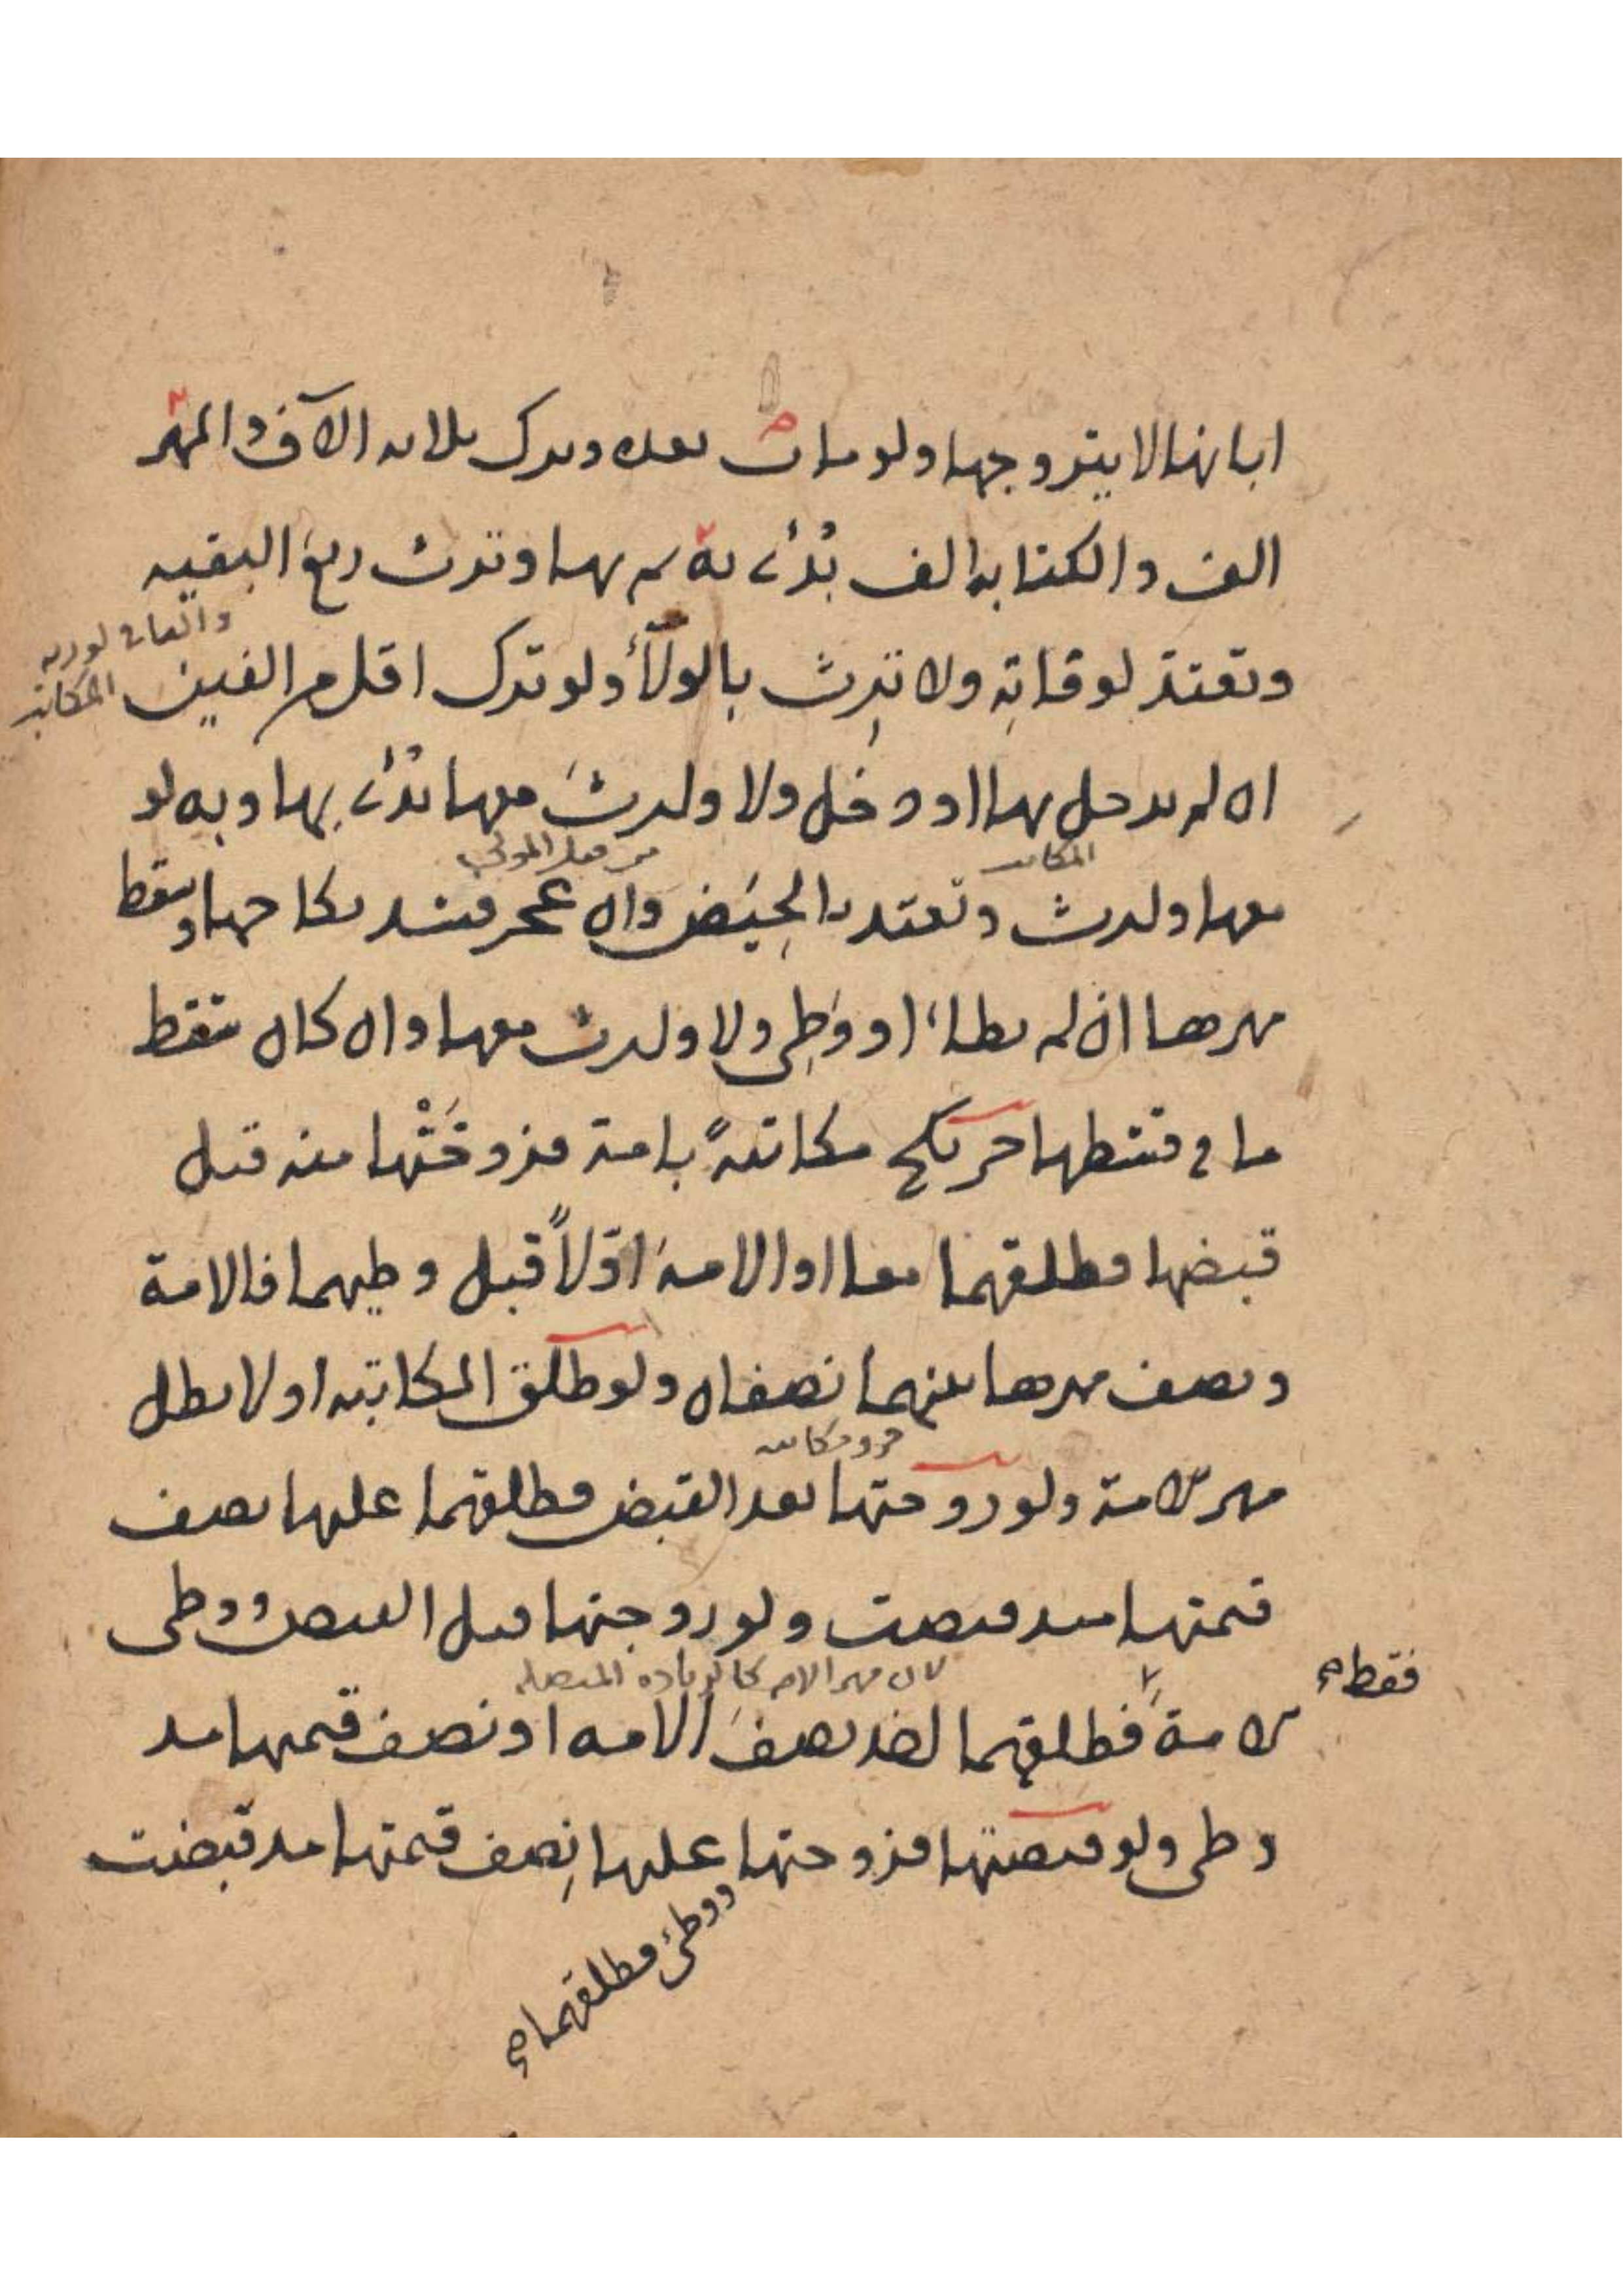 ابانها لا يتزوجها ولو مات بعده وترك ثلاثه الآف والمهر
الف والكتابه الف بُدئ به ثم بها وترث ربع البقيه
والفان لورثه المكاتبه
وتعتد لوفاته ولا ترث بالولآء ولو ترك اقل من الفين
ان لم يدخل بها او دخل ولا ولدت معها بُدئ بها وبه لو
المكاتبه
من فعل المولى
معها ولدت وتعتد بالحيض وان عجز فسد نكاحها وسقط
مهرها ان لم يطاء او وطى ولا ولدت معها وان كان سقط
ما في قسطها حر نكح مكاتبةً بامة فزوجَتْها منه قبل
قبضها فطلقهما معا او الامة اوّلاً قبل وطيهما فالامة
ونصف مهرها بينهما نصفان ولو طلق المكاتبه اولا بطل
مهر الامة ولو زوجتها بعد القبض فطلقهما عليها نصف
قيمتها مذ قبضت ولو زوجتها قبل القبض ووطى
فقط
لان مهر الامه كالزياده المتصله
الامة فطلقهما اخذ نصفَ الامه او نصف قيمتها مذ
وطى ولو قبضتها فزوجتها عليها نِصف قيمتها مذ قبضت
ووطئ فطلقهما